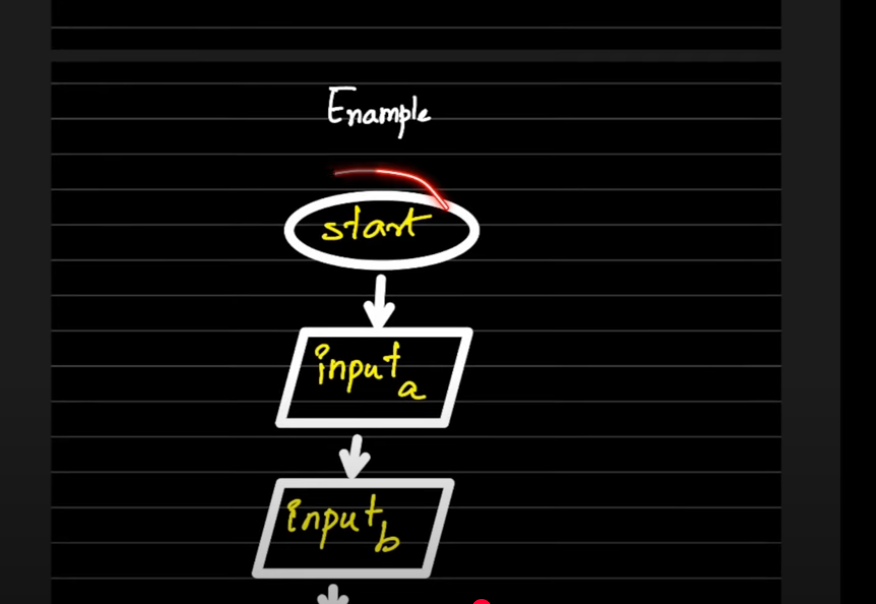 Example
start
input a
input b